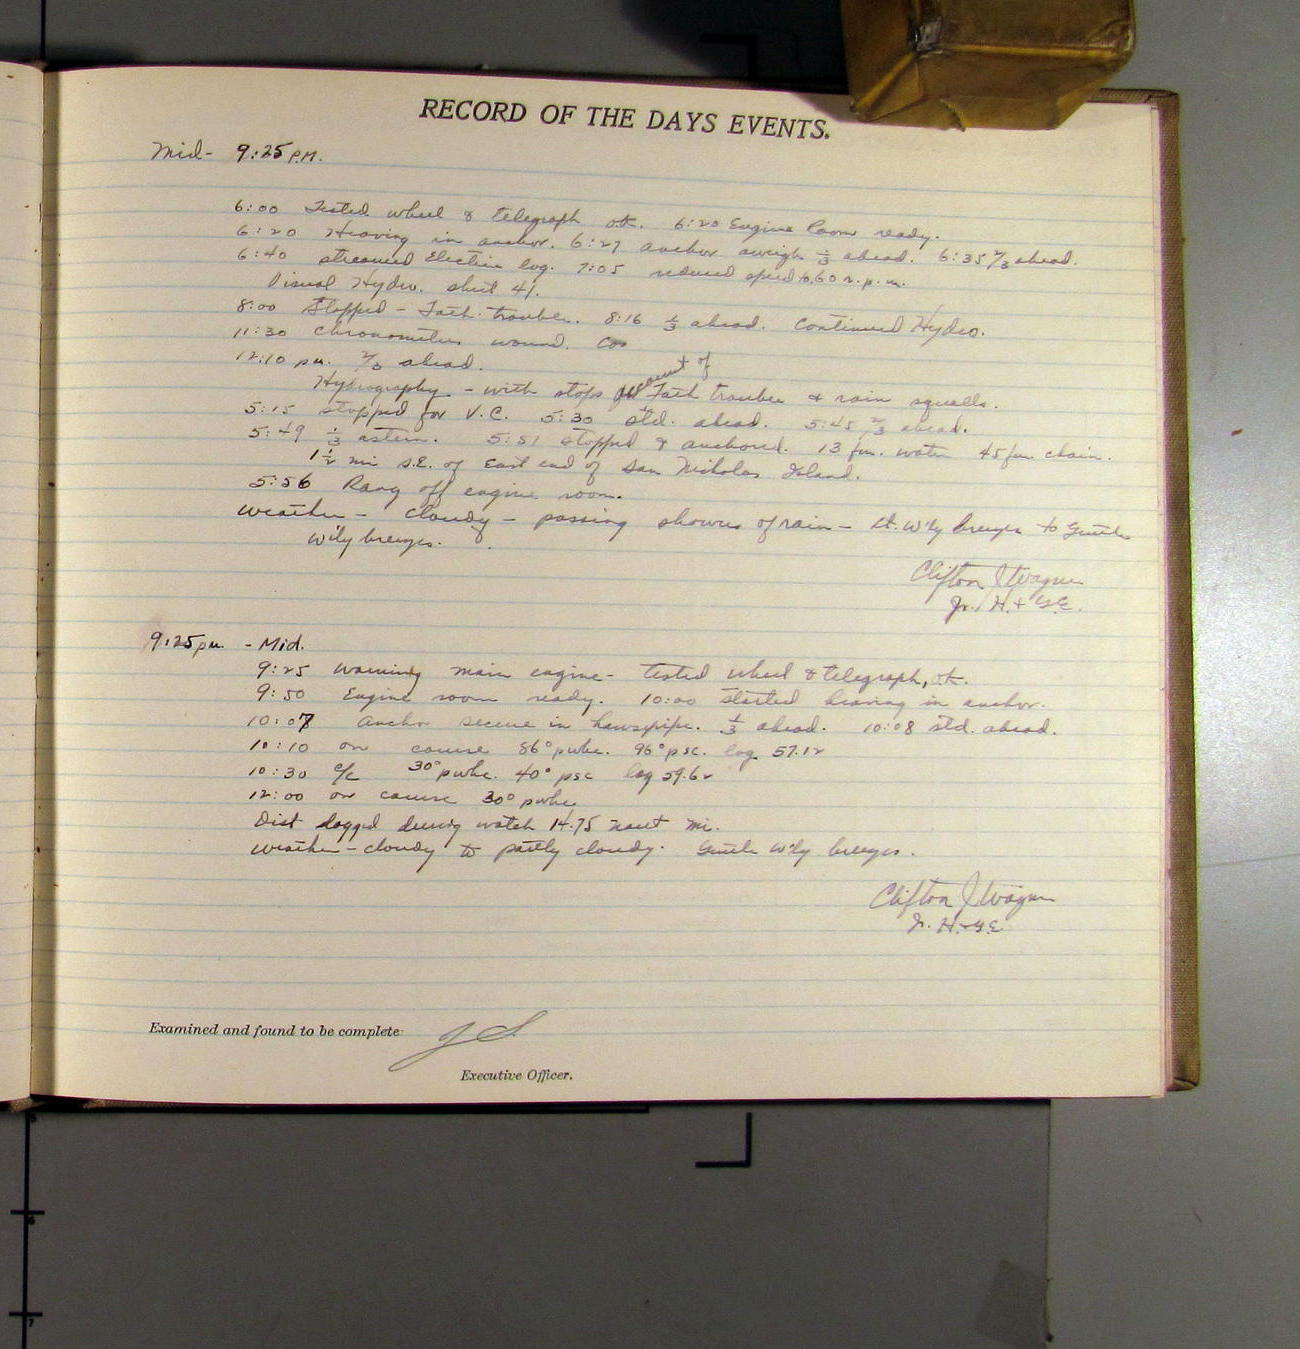 RECORD OF THE DAYS EVENTS.
Mid- 9:25 P.M.
6:00 Tested wheel & telegraph o.k. 6:20 Engine Room ready.
6:20 Heaving in anchor. 6:27 anchor aweigh 1/3 ahead. 6:35 2/3 ahead.
6:40 streamed Electric log. 7:05 reduced speed to 60 r.p.m.
Visual Hydro. sheet 41.
8:00 Stopped - Fath. trouble. 8:16 1/3 ahead. Continued Hydro.
11:30 Chronometers wound.
12:10 p.m. 2/3 ahead.
Hydrography - with stops account of Fath trouble & rain squalls.
5:15 stopped for V.C. 5:30 std. ahead. 5:45 2/3 ahead.
5:49 1/3 astern. 5:51 stopped & anchored. 13 fm. water 45 fm chain.
1 1/2 mi S.E. of East end of San Nicholas Island.
5:56 Rang off engine room.
Weather - cloudy - passing showers of rain - Lt. W'ly breezes to Gentle
W'ly breezes.
Clifton J. Wagner
Jr. H. + G.E.
9:25 p.m. - Mid.
9:25 Warming main engine - tested wheel & telegraph, o.k.
9:50 Engine room ready. 10:00 started heaving in anchor.
10:07 Anchor secure in hawsepipe. 1/3 ahead. 10:08 std. ahead.
10:10 on course 86° pwhc. 96° psc. log 57.12
10:30 c/c 30° pwhc. 40° psc log 59.62
12:00 on course 30° pwhc
Dist logged during watch 14.75 naut mi.
Weather - cloudy to partly cloudy. Gentle W'ly breezes.
Clifton J. Wagner
Jr. H. + G.E.
Examined and found to be complete:
Executive Officer.
6
7